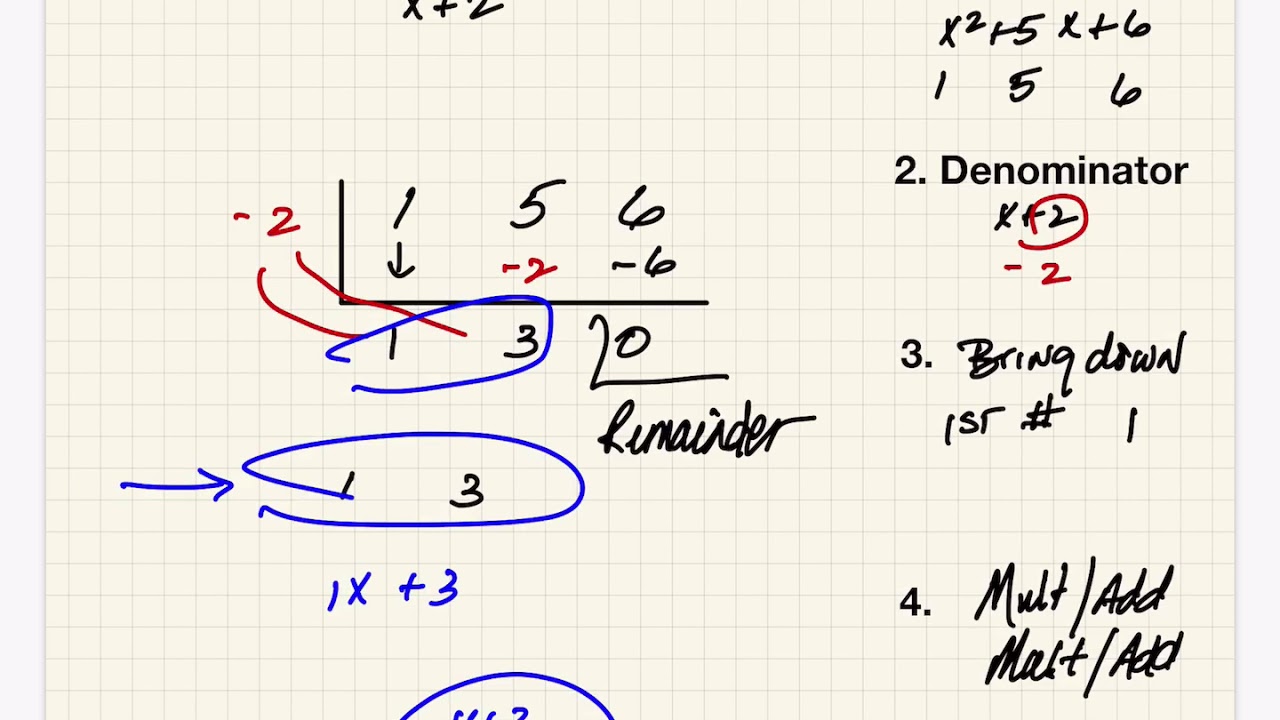 x+2
-2 1 5 6
↓ -2 -6
1 3 0
Remainder
→ 1 3
1x + 3
x²+5x+6
1 5 6
2. Denominator
x+2
-2
3. Bring down
1st # 1
4. Mult/Add
Mult/Add